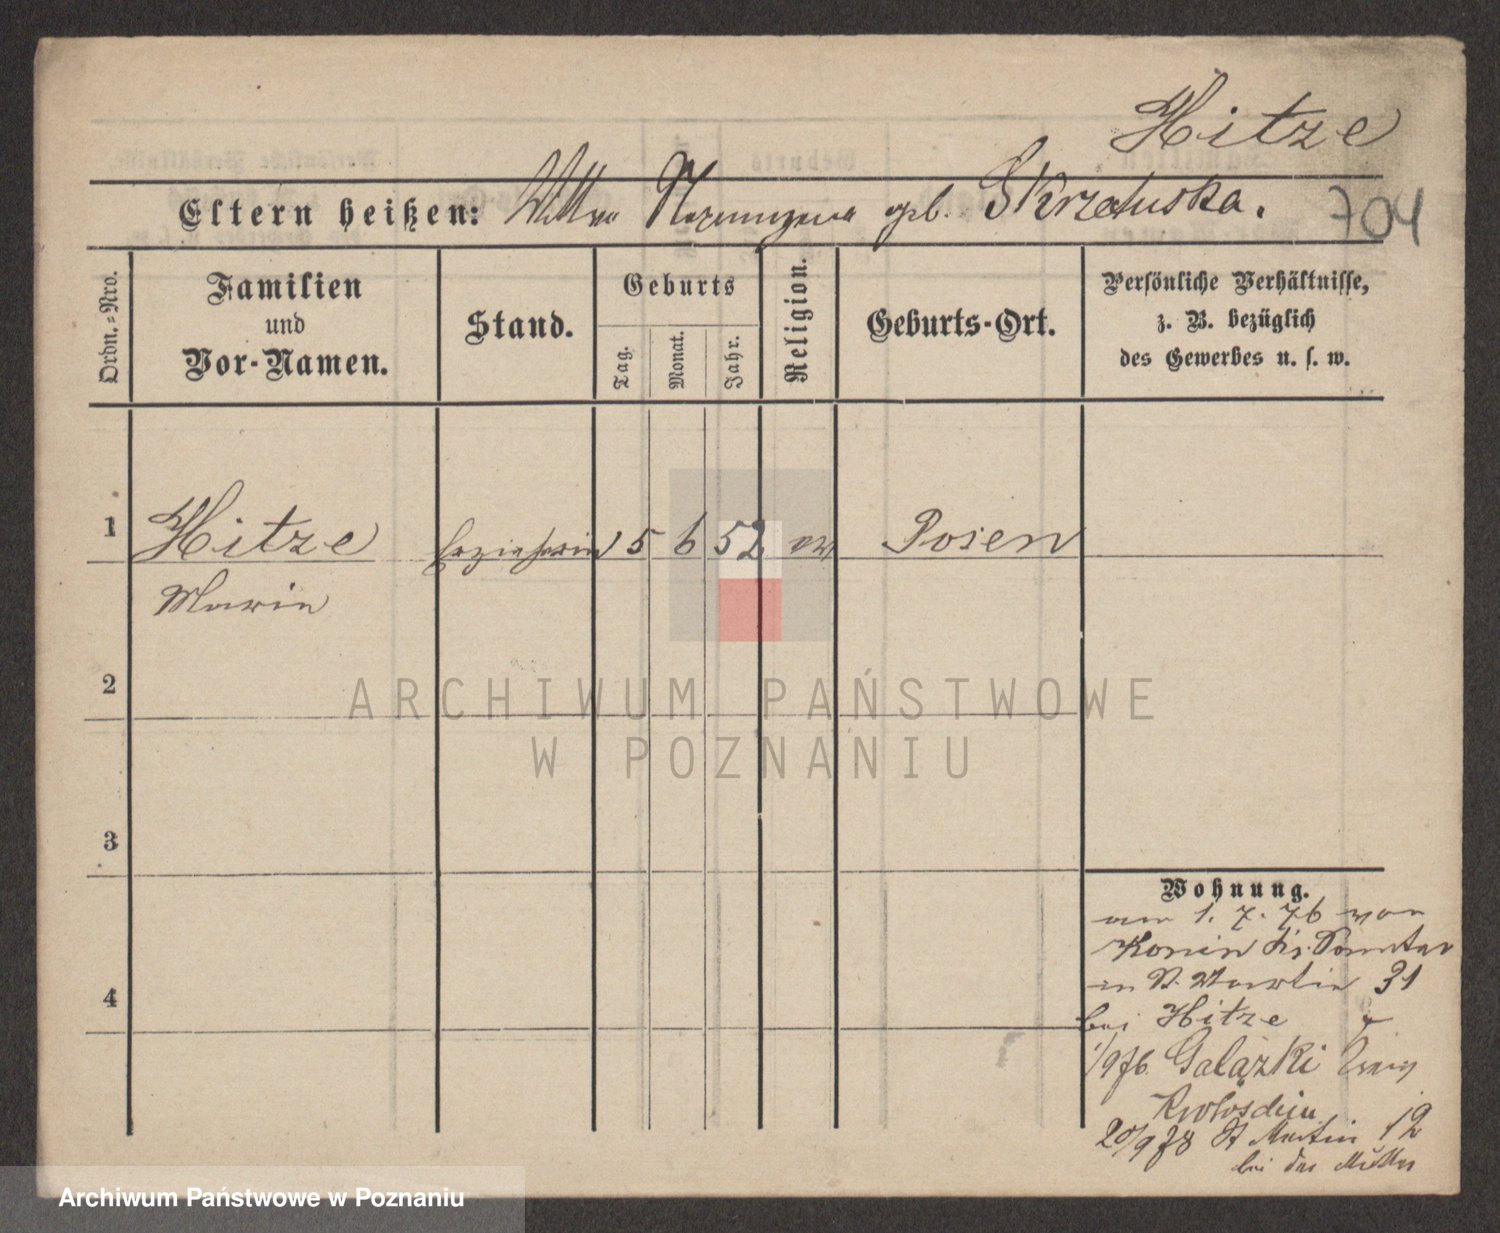 Hitze
Eltern heißen: Wittwe geb. Skrzetuska.
704
Ordn.=Nro.
Familien
und
Vor-Namen.
Stand.
Geburts
Tag.
Monat.
Jahr.
Religion.
Geburts-Ort.
Persönliche Verhältnisse,
z. B. bezüglich
des Gewerbes u. s. w.
1
Hitze Erzieherin 5 6 52 ev Posen
Marie
2
ARCHIWUM PAŃSTWOWE
W POZNANIU
3
Wohnung.
am 1. 7. 76 von
Konin Kr.
in St. Martin 31
4
bei Hitze
1/9 76. Galązki
Krotoschin
20/9 78 St Martin 12
bei der Mutter
Archiwum Państwowe w Poznaniu